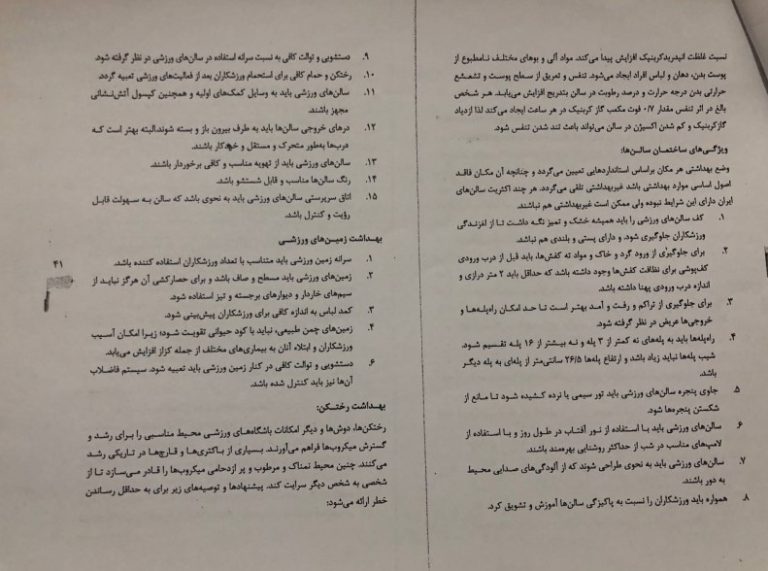 نسبت غلظت انیدریدکربنیک افزایش پیدا می‌کند. مواد آلی و بوهای مختلف نامطبوع از
پوست بدن، دهان و لباس افراد ایجاد می‌شود. تنفس و تعریق از سطح پوست و تشعشع
حرارتی بدن درجه حرارت و درصد رطوبت در سالن بتدریج افزایش می‌یابد. هر شخص
بالغ در اثر تنفس مقدار ۰/۷ فوت مکعب گاز کربنیک در هر ساعت ایجاد می‌کند لذا ازدیاد
گازکربنیک و کم شدن اکسیژن در سالن می‌تواند باعث تند شدن تنفس شود.
ویژگی‌های ساختمان سالن‌ها:
وضع بهداشتی هر مکان براساس استانداردهایی تعیین می‌گردد و چنانچه آن مکان فاقد
اصول اساسی موارد بهداشتی باشد غیربهداشتی تلقی می‌گردد. هر چند اکثریت سالن‌های
ایران دارای این شرایط نبوده ولی ممکن است غیربهداشتی هم نباشند.
۱. کف سالن‌های ورزشی را باید همیشه خشک و تمیز نگه داشت تا از لغزندگی
ورزشکاران جلوگیری شود. و دارای پستی و بلندی هم نباشد.
۲. برای جلوگیری از ورود گرد و خاک و مواد ته کفش‌ها، باید قبل از درب ورودی
کف‌پوشی برای نظافت کفش‌ها وجود داشته باشد که حداقل باید ۲ متر درازی و
اندازه درب ورودی پهنا داشته باشد.
۳. برای جلوگیری از تراکم و رفت و آمد بهتر است تا حد امکان راه‌پله‌ها و
خروجی‌ها عریض در نظر گرفته شود.
۴. راه‌پله‌ها باید به پله‌های نه کمتر از ۳ پله و نه بیشتر از ۱۶ پله تقسیم شود.
شیب پله‌ها نباید زیاد باشد و ارتفاع پله‌ها ۲۶/۵ سانتی‌متر از پله‌ای به پله دیگر
باشد.
۵. جلوی پنجره سالن‌های ورزشی باید تور سیمی یا نرده کشیده شود تا مانع از
شکستن پنجره‌ها شود.
۶. سالن‌های ورزشی باید با استفاده از نور آفتاب در طول روز و با استفاده از
لامپ‌های مناسب در شب از حداکثر روشنایی بهره‌مند باشند.
۷. سالن‌های ورزشی باید به نحوی طراحی شوند که از آلودگی‌های صدایی محیط
به دور باشند.
۸. همواره باید ورزشکاران را نسبت به پاکیزگی سالن‌ها آموزش و تشویق کرد.
۹. دستشویی و توالت کافی به نسبت سرانه استفاده در سالن‌های ورزشی در نظر گرفته شود.
۱۰. رختکن و حمام کافی برای استحمام ورزشکاران بعد از فعالیت‌های ورزشی تعبیه گردد.
۱۱. سالن‌های ورزشی باید به وسایل کمک‌های اولیه و همچنین کپسول آتش‌نشانی
مجهز باشند.
۱۲. درهای خروجی سالن‌ها باید به طرف بیرون باز و بسته شوند.البته بهتر است که
درب‌ها به‌طور متحرک و مستقل و خودکار باشند.
۱۳. سالن‌های ورزشی باید از تهویه مناسب و کافی برخوردار باشند.
۱۴. رنگ سالن‌ها مناسب و قابل شستشو باشد.
۱۵. اتاق سرپرستی سالن‌های ورزشی باید به نحوی باشد که سالن به سهولت قابل
رؤیت و کنترل باشد.
بهداشت زمین‌های ورزشی
۱. سرانه زمین ورزشی باید متناسب با تعداد ورزشکاران استفاده کننده باشد.
۲. زمین‌های ورزشی باید مسطح و صاف باشد و برای حصارکشی آن هرگز نباید از
سیم‌های خاردار و دیوارهای برجسته و تیز استفاده شود.
۳. کمد لباس به اندازه کافی برای ورزشکاران پیش‌بینی شود.
۴. زمین‌های چمن طبیعی، نباید با کود حیوانی تقویت شود؛ زیرا امکان آسیب
ورزکاران و ابتلاء آنان به بیماری‌های مختلف از جمله کزاز افزایش می‌یابد.
۶. دستشویی و توالت کافی در کنار زمین ورزشی باید تعبیه شود. سیستم فاضلاب
آن‌ها نیز باید کنترل شده باشد.
بهداشت رختکن:
رختکن‌ها، دوش‌ها و دیگر امکانات باشگاه‌های ورزشی محیط مناسبی را برای رشد و
گسترش میکروب‌ها فراهم می‌آورند. بسیاری از باکتری‌ها و قارچ‌ها در تاریکی رشد
می‌کنند. چنین محیط نمناک و مرطوب و پر ازدحامی میکروب‌ها را قادر می‌سازد تا از
شخصی به شخص دیگر سرایت کند. پیشنهادها و توصیه‌های زیر برای به حداقل رساندن
خطر ارائه می‌شود:
۴۱